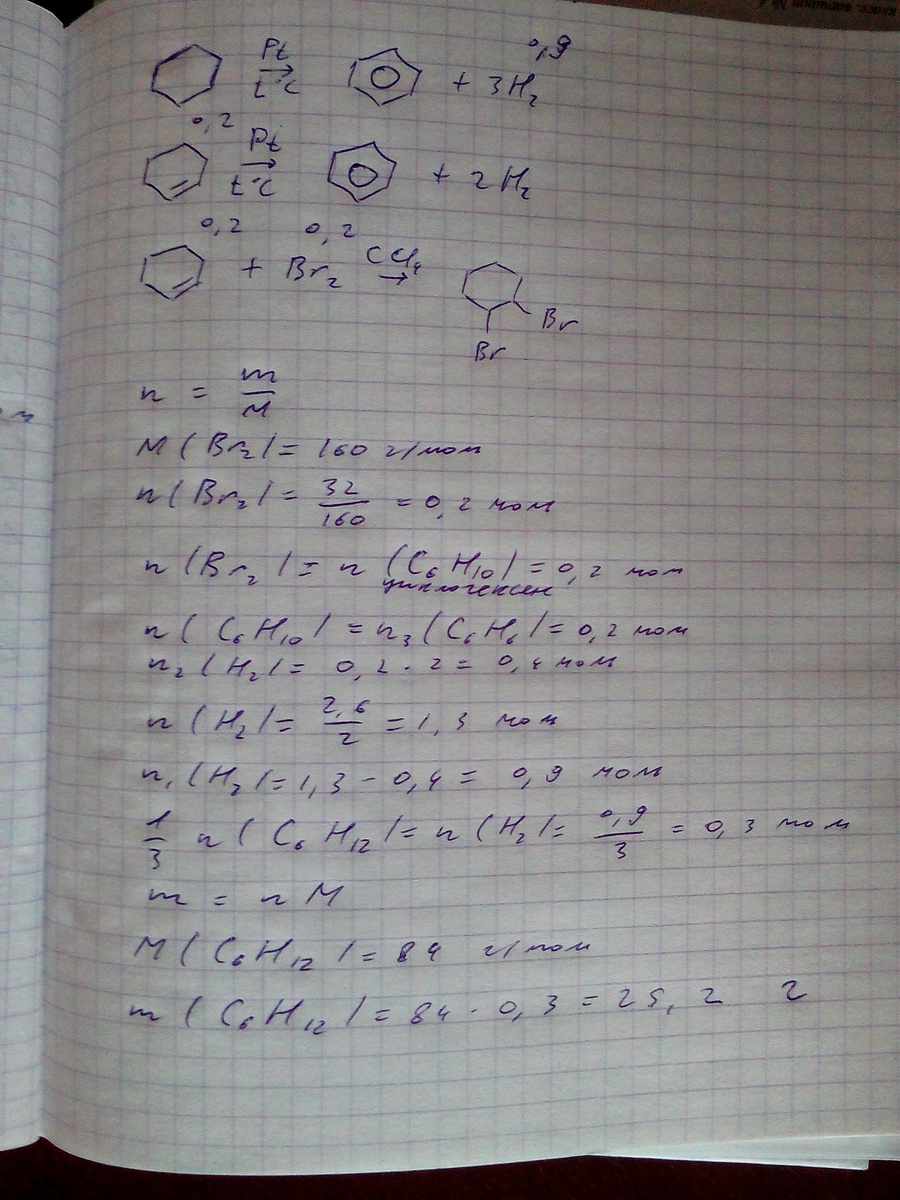 класс, вариант № 1
0,9
Pt
t°C
+ 3H₂
0,2
Pt
t°C
+ 2H₂
0,2 0,2
+ Br₂ CCl₄ →
Br
Br
n = m/M
M(Br₂) = 160 г/моль
n(Br₂) = 32/160 = 0,2 моль
n(Br₂) = n(C₆H₁₀) = 0,2 моль
циклогексен
n(C₆H₁₀) = n₃(C₆H₆) = 0,2 моль
n₂(H₂) = 0,2 · 2 = 0,4 моль
n(H₂) = 2,6/2 = 1,3 моль
n₁(H₂) = 1,3 − 0,4 = 0,9 моль
1/3 n(C₆H₁₂) = n(H₂) = 0,9/3 = 0,3 моль
m = n M
M(C₆H₁₂) = 84 г/моль
m(C₆H₁₂) = 84 · 0,3 = 25,2 г